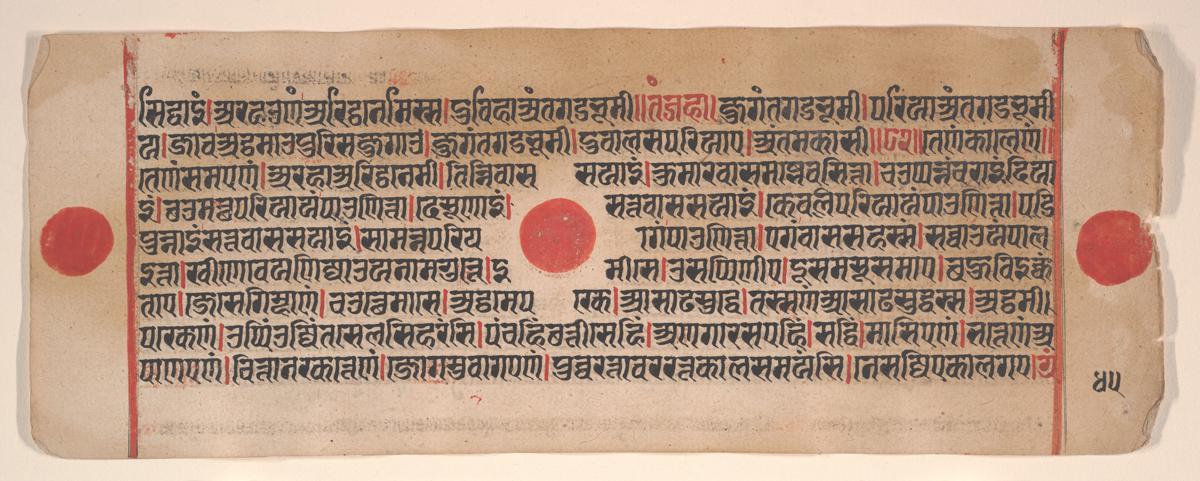 सिद्धाइं।अरहउणंअरिट्ठनेमिस्स।दुविहाअंतगडभूमी॥तंजहा॥जुगंतगडभूमी।परिआअंतगडभूमी
य।जावअट्ठमाउपुरिसजुगाउ।जुगंतगडभूमी।दुवालसपरिआए।अंतमकासी॥तेणंकालेणं॥
तेणंसमएणं।अरहाअरिट्ठनेमी।तिन्निवास सयाइं।कुमारवासमज्झेवसित्ता।चउपन्नंचराइंदिया
इं।छउमत्थपरिआयंपाउणित्ता।देसूणाइं। सत्तवाससयाइं।केवलीपरिआयंपाउणित्ता।पडि
पुन्नाइंसत्तवाससयाइं।सामन्नपरिय गंपाउणित्ता।एगंवाससहस्सं।सव्वाउयंपाल
इत्ता।खीणेवेयणिज्जाउयनामगुत्ते।इ मीसे।उसप्पिणीए।दूसमसूसमाए।बहुविइक्कं
ताए।जेसेगिम्हाणं।चउत्थेमासे।अट्ठमेप क्खे।आसाढसुद्धे।तस्सणंआसाढसुद्धस्स।अट्ठमी।
पक्खेणं।उप्पिंउज्जिंतसेलसिहरंसि।पंचहिंछत्तीसेहिं।अणगारसएहिं।सद्धिं।मासिएणं।भत्तेणंअ
पाणएणं।चित्तानक्खत्तेणं।जोगमुवागएणं।पुव्वरत्तावरत्तकालसमयंसि।नेसज्जिएकालगए।ग्रं